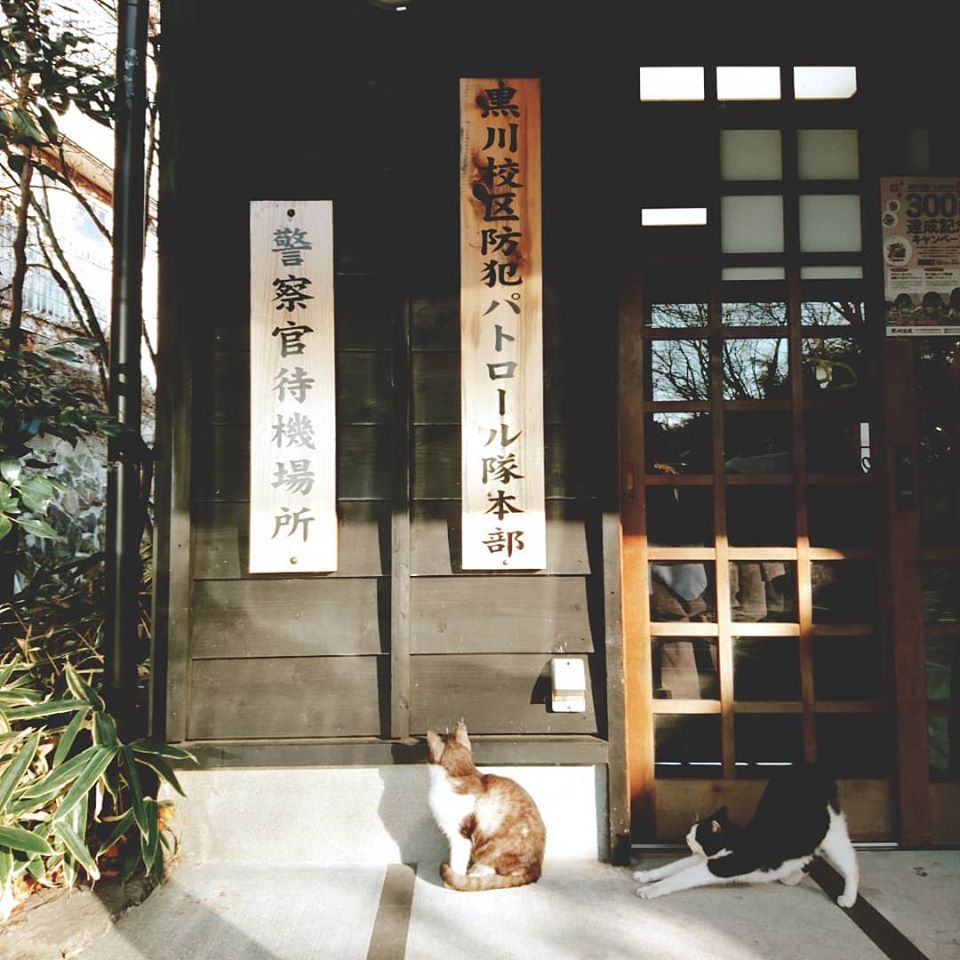 警察官待機場所
黒川校区防犯パトロール隊本部
300
達成記念
キャンペーン